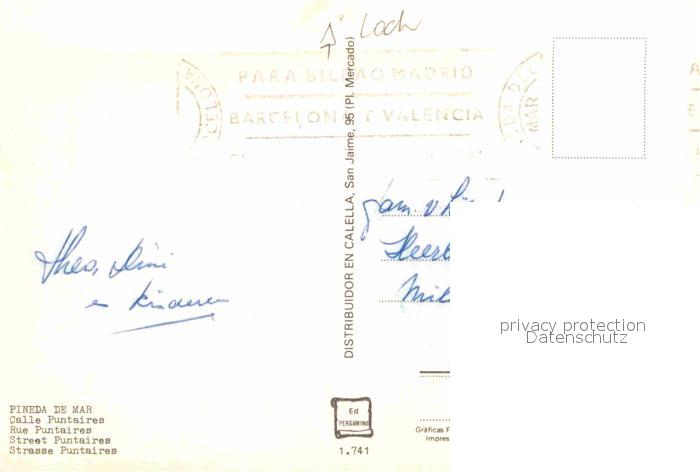 Loch
PARA BILBAO MADRID
BARCELONA Y VALENCIA
MAR
DISTRIBUIDOR EN CALELLA, San Jaime, 95 (Pl. Mercado)
Fam. v.
Heerl
Mil
Theo, Mimi
e Kinderen
privacy protection
Datenschutz
PINEDA DE MAR
Calle Puntaires
Rue Puntaires
Street Puntaires
Strasse Puntaires
Ed
PERGAMINO
1.741
Gráficas F
Impres